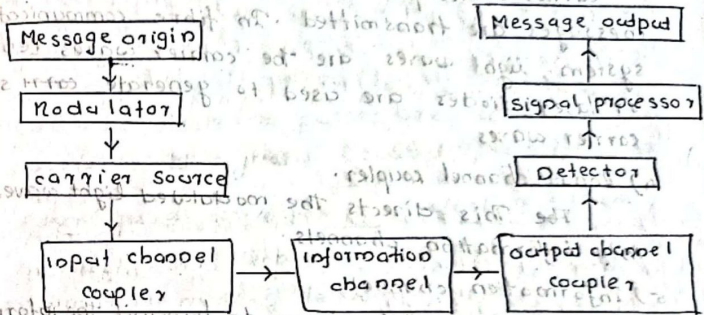 Message origin
Modulator
carrier source
input channel
coupler
information
channel
output channel
coupler
Detector
signal processor
Message output